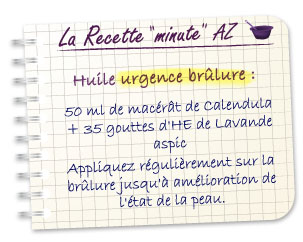 La Recette "minute" AZ
Huile urgence brûlure :
50 ml de macérât de Calendula
+ 35 gouttes d'HE de Lavande
aspic
Appliquez régulièrement sur la
brûlure jusqu'à amélioration de
l'état de la peau.